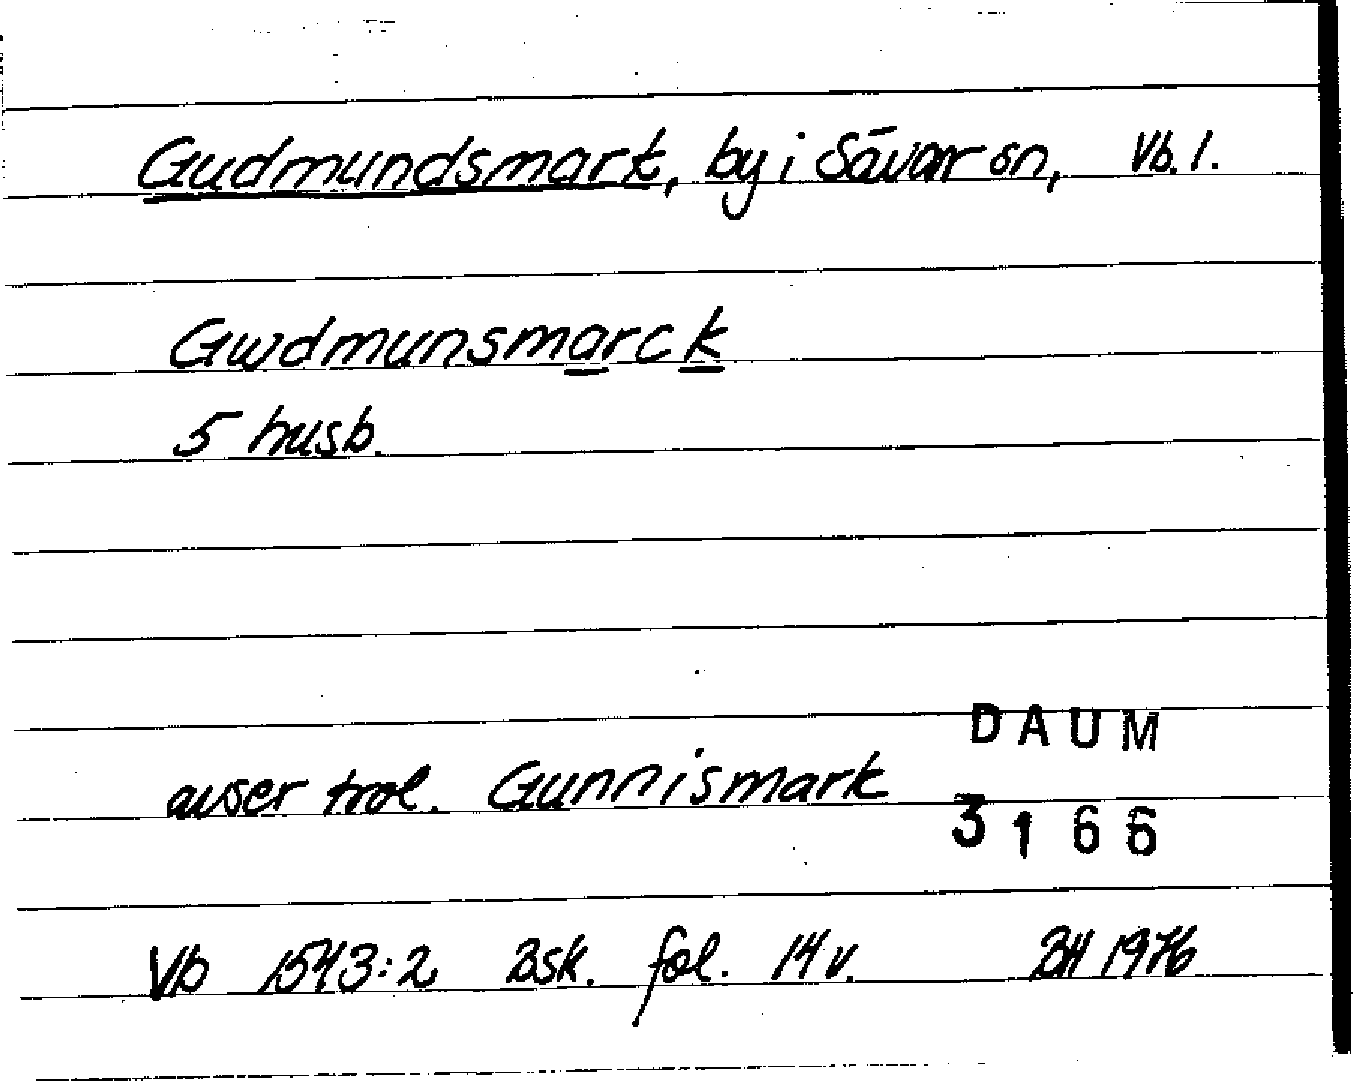 Gudmundsmark, by i Sävar sn, Vb. l.
Gwdmunsmarck
5 husb.
DAUM
avser trol. Gunnismark
3166
Vb 1543:2 Bsk. fol. 14 v. BH 1976